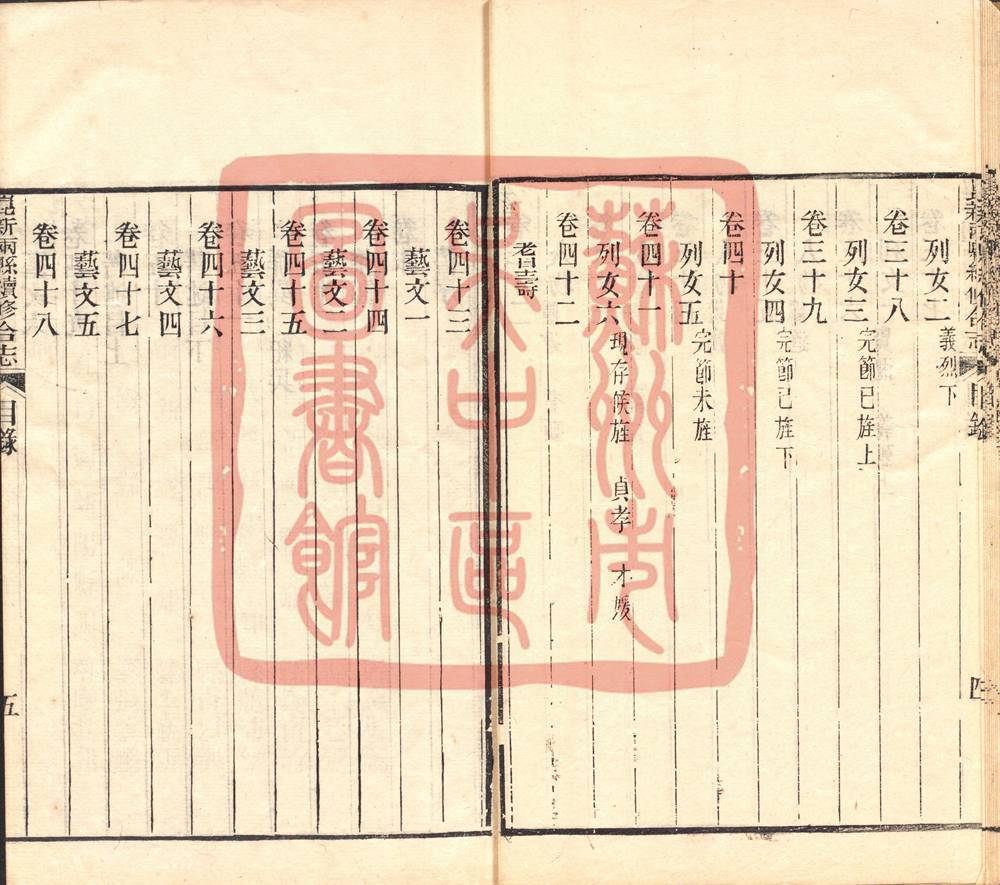 列女二 義烈下
卷三十八
列女三 完節已旌上
卷三十九
列女四 完節已旌下
卷四十
列女五 完節未旌
卷四十一
列女六 現存候旌 貞孝 才媛
卷四十二
耆壽
四
卷四十三
藝文一
卷四十四
藝文二
卷四十五
藝文三
卷四十六
藝文四
卷四十七
藝文五
卷四十八
昆新兩縣續修合志 目錄
五
蘇州市
吳中區
圖書館